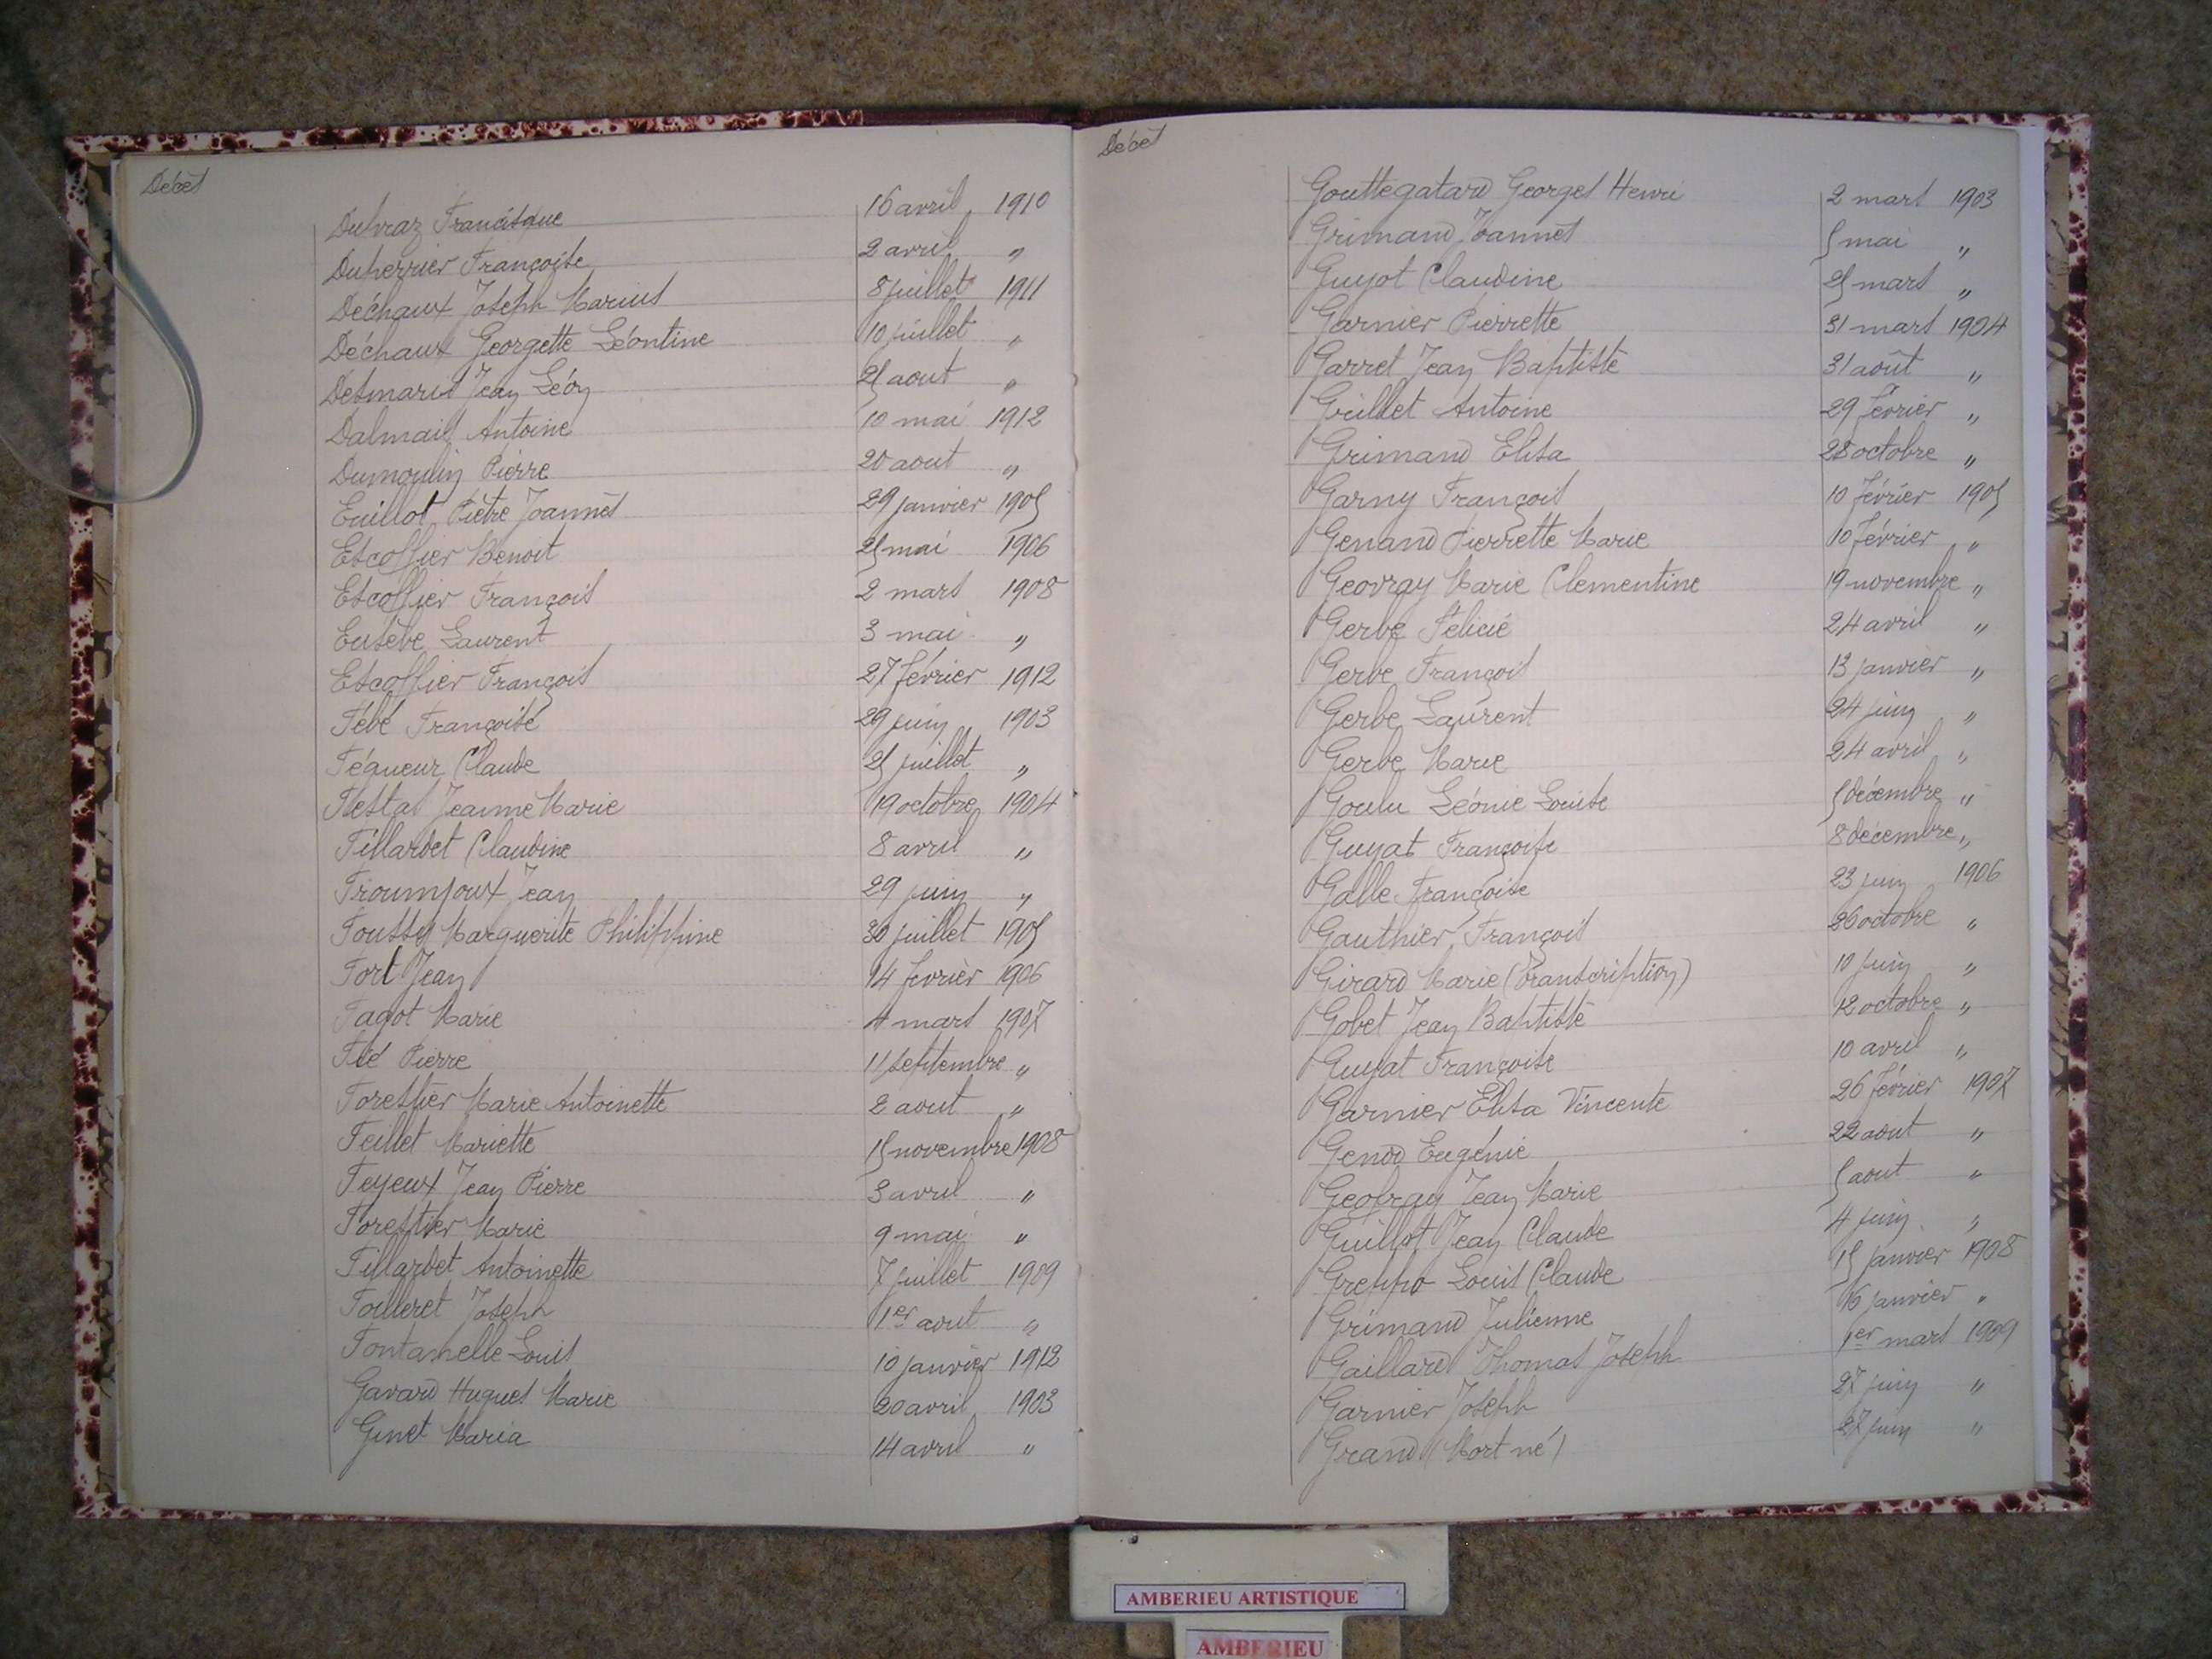 Décès
Dubraz Francisque 16 avril 1910
Duperrier Françoise 2 avril "
Déchaux Joseph Marius 8 juillet 1911
Déchaux Georgette Léontine 10 juillet "
Desmaris Jean Léon 25 aout "
Dalmais Antoine 10 mai 1912
Dumoulin Pierre 20 aout "
Euillot Piètre Joannès 29 janvier 1905
Escoffier Benoit 25 mai 1906
Escoffier François 2 mars 1908
Eusèbe Laurent 3 mai "
Escoffier François 27 février 1912
Fébé Françoise 29 juin 1903
Féqueur Claude 25 juillet "
Jeanne Marie 19 octobre 1904
Fillardet Claudine 8 avril "
Froumjoux Jean 29 juin "
Foussy Marguerite Philippine 30 juillet 1905
Fort Jean 14 fevrièr 1906
Fagot Marie 4 mars 1907
Pierre 11 septembre "
Forestier Marie Antoinette 2 aout "
Feillet Mariette 15 novembre 1908
Feyeux Jean Pierre 3 avril "
Forestier Marie 9 mai "
Fillardet Antoinette 7 juillet 1909
Foilleret Joseph 1er aout "
Fontanelle Louis 10 janvier 1912
Gavard Hugues Marie 20 avril 1903
Ginet Maria 14 avril "
Décès
Gouttegatard Georges Henri 2 mars 1903
Grimand Joannès 5 mai "
Guyot Claudine 25 mars "
Garnier Pierrette 31 mars 1904
Garret Jean Baptiste 31 août "
Grillet Antoine 29 février "
Grimand Elisa 28 octobre "
Garny François 10 février 1905
Genand Pierrette Marie 10 février "
Geovray Marie Clementine 19 novembre "
Gerbe Félicie 24 avril "
Gerbe François 13 janvier "
Gerbe Laurent 24 juin "
Gerbe Marie 24 avril "
Goulu Léonie Louise 5 décembre "
Guyat Françoise 8 décembre "
Galle Françoise 23 juin 1906
Gauthier François 26 octobre "
Girard Marie (Transcription) 10 juin "
Gobet Jean Baptiste 12 octobre "
Guyat Françoise 10 avril "
Garnier Elisa Vincente 26 février 1907
Genod Eugénie 22 aout "
Geobray Jean Marie 5 aout "
Guillot Jean Claude 4 juin "
Greppo Louis Claude 15 janvier 1908
Grimand Julienne 16 janvier "
Gaillard Thomas Joseph 1er mars 1909
Garnier Joseph 27 juin "
Grand (Mort né) 27 juin "
AMBERIEU ARTISTIQUE
AMBERIEU